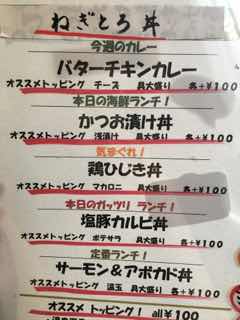 ねぎとろ丼
今週のカレー
バターチキンカレー
オススメトッピング チーズ 具大盛り 各+¥100
本日の海鮮ランチ!
かつお漬け丼
オススメトッピング 浅漬け 具大盛り 各+¥100
気まぐれ!
鶏ひじき丼
オススメトッピング マカロニ 具大盛り 各+¥100
本日のガッツリ ランチ!
塩豚カルビ丼
オススメトッピング ポテサラ 具大盛り 各+¥100
定番ランチ!
サーモン&アボカド丼
オススメトッピング 温玉 具大盛り 各+¥100
オススメ トッピング! all¥100